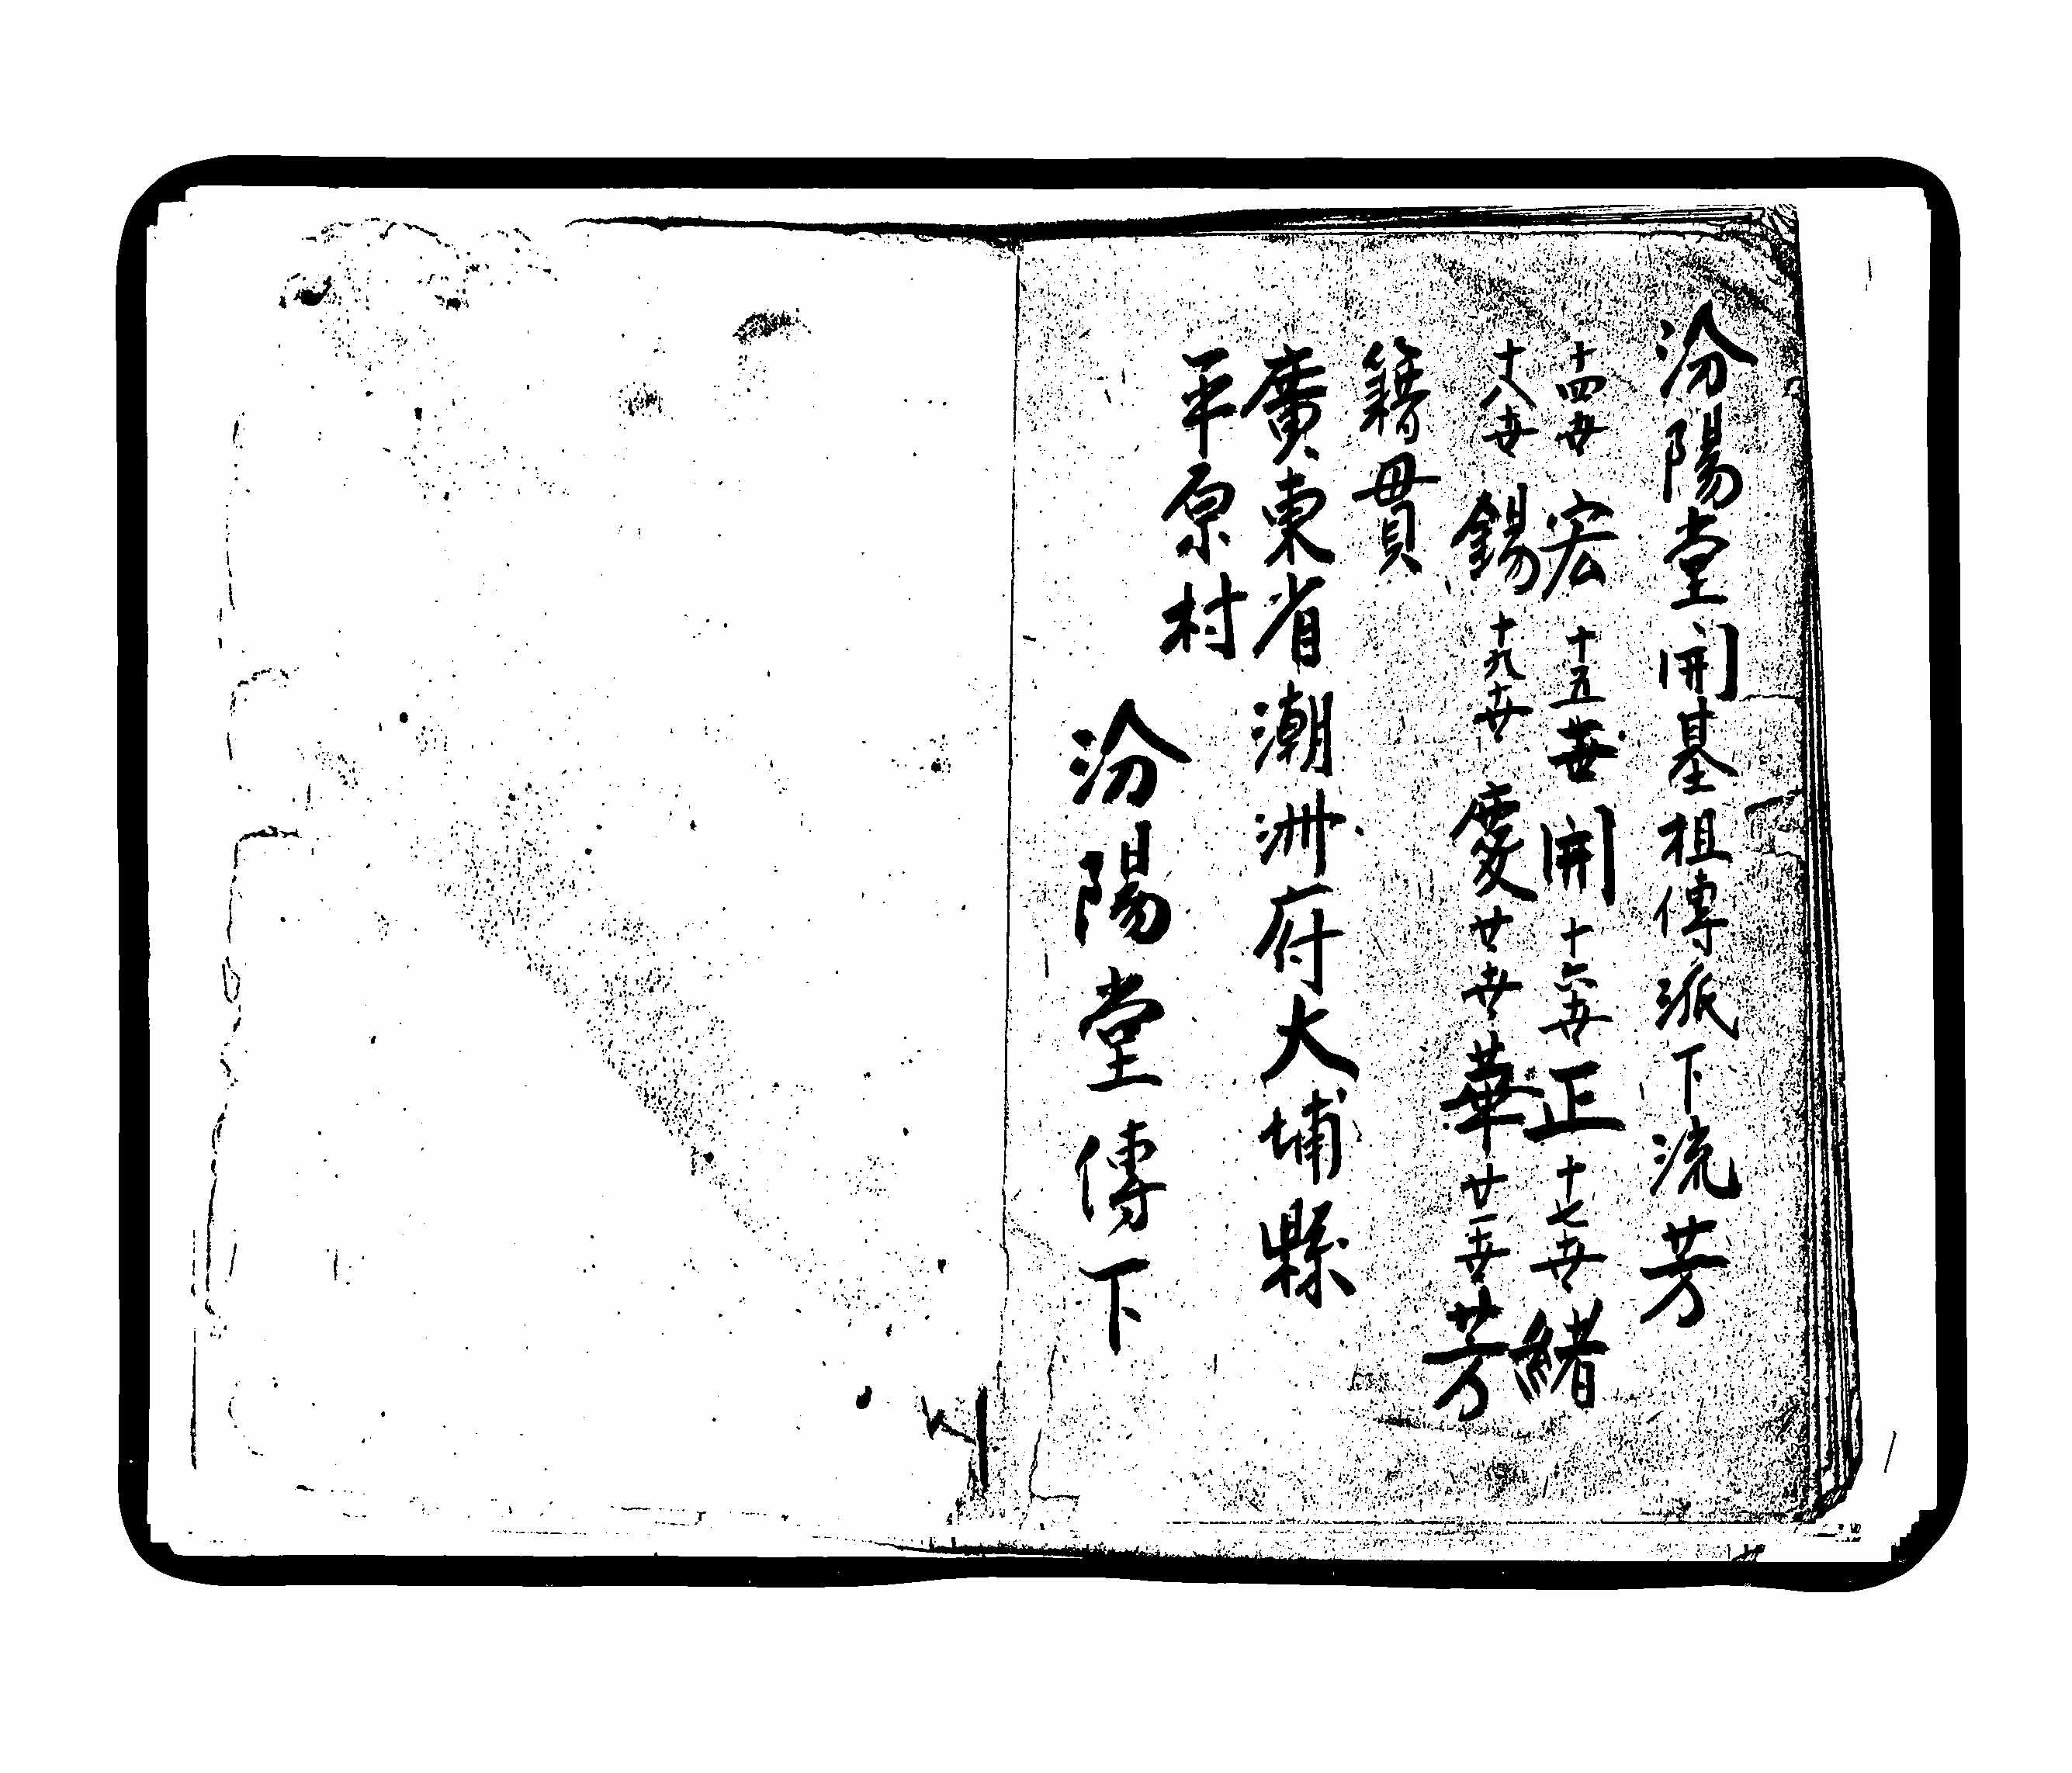 汾陽堂開基祖傳派下流芳
十四世宏十五世開十六世正十七世緒
十八世錫十九世慶廿世華廿一世芳
籍貫
廣東省潮洲府大埔縣
平原村
汾陽堂傳下